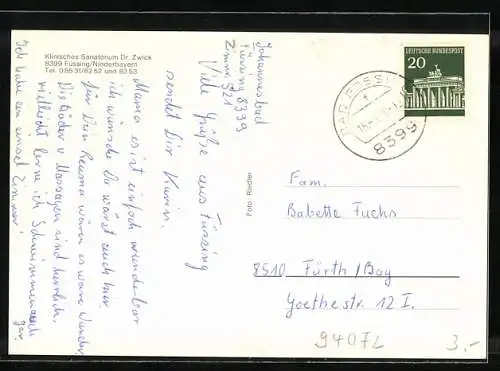 Klinisches Sanatorium Dr. Zwick
8399 Füssing/Niederbayern
Tel. 0 85 31/82 52 und 82 53
Johannesbad
Füssing 8399
Zimm. 521
Viele Grüße aus Füssing
sendet Dir Karin.
Mama es ist einfach wunderbar
ich wünsche Du wärst auch hier
für Dein Reuma wären es wäre Wunder
Die Bäder u. Massagen sind herrlich.
vielleicht lerne ich Schwimmen auch
gar
Ich habe ein einzel Zimmer!
Foto: Riedler
DEUTSCHE BUNDESPOST
20
8399
Fam.
Babette Fuchs
8510 Fürth/Bay
Goethestr. 12 I.
9407L
3.-